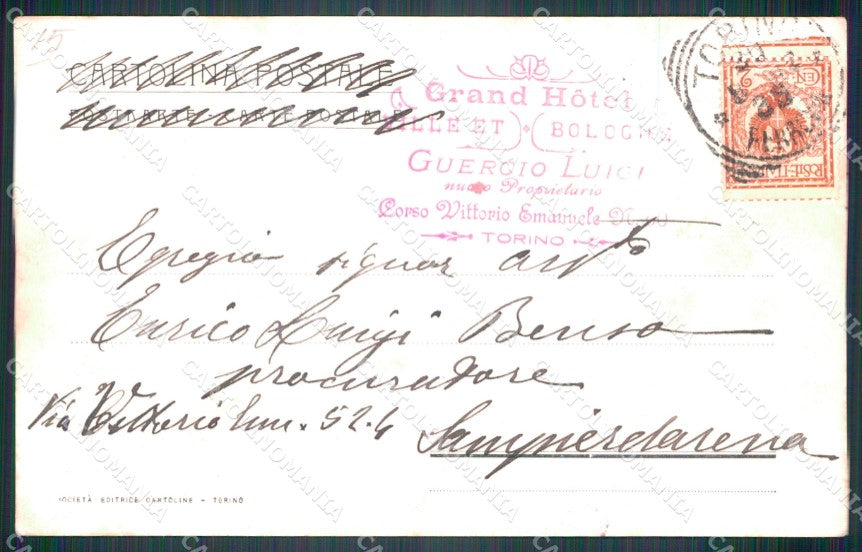 15
CARTOLINA POSTALE
Grand Hôtel
LILLE ET BOLOGNE
GUERCIO LUIGI
nuovo Proprietario
Corso Vittorio Emanuele
TORINO
TORINO
FERROVIA
POSTE ITALIANE
Egregio signor avv.to
Enrico Luigi Benso
procuratore
Via Vittorio Em. 52.4
Sampierdarena
SOCIETÀ EDITRICE CARTOLINE – TORINO
CARTOLINOMANIA